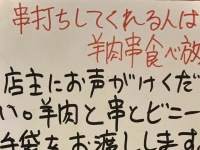 串打ちしてくれる人は
羊肉串食べ放
店主にお声がけくだ
い。羊肉と串とビニー
手袋をお渡しします。